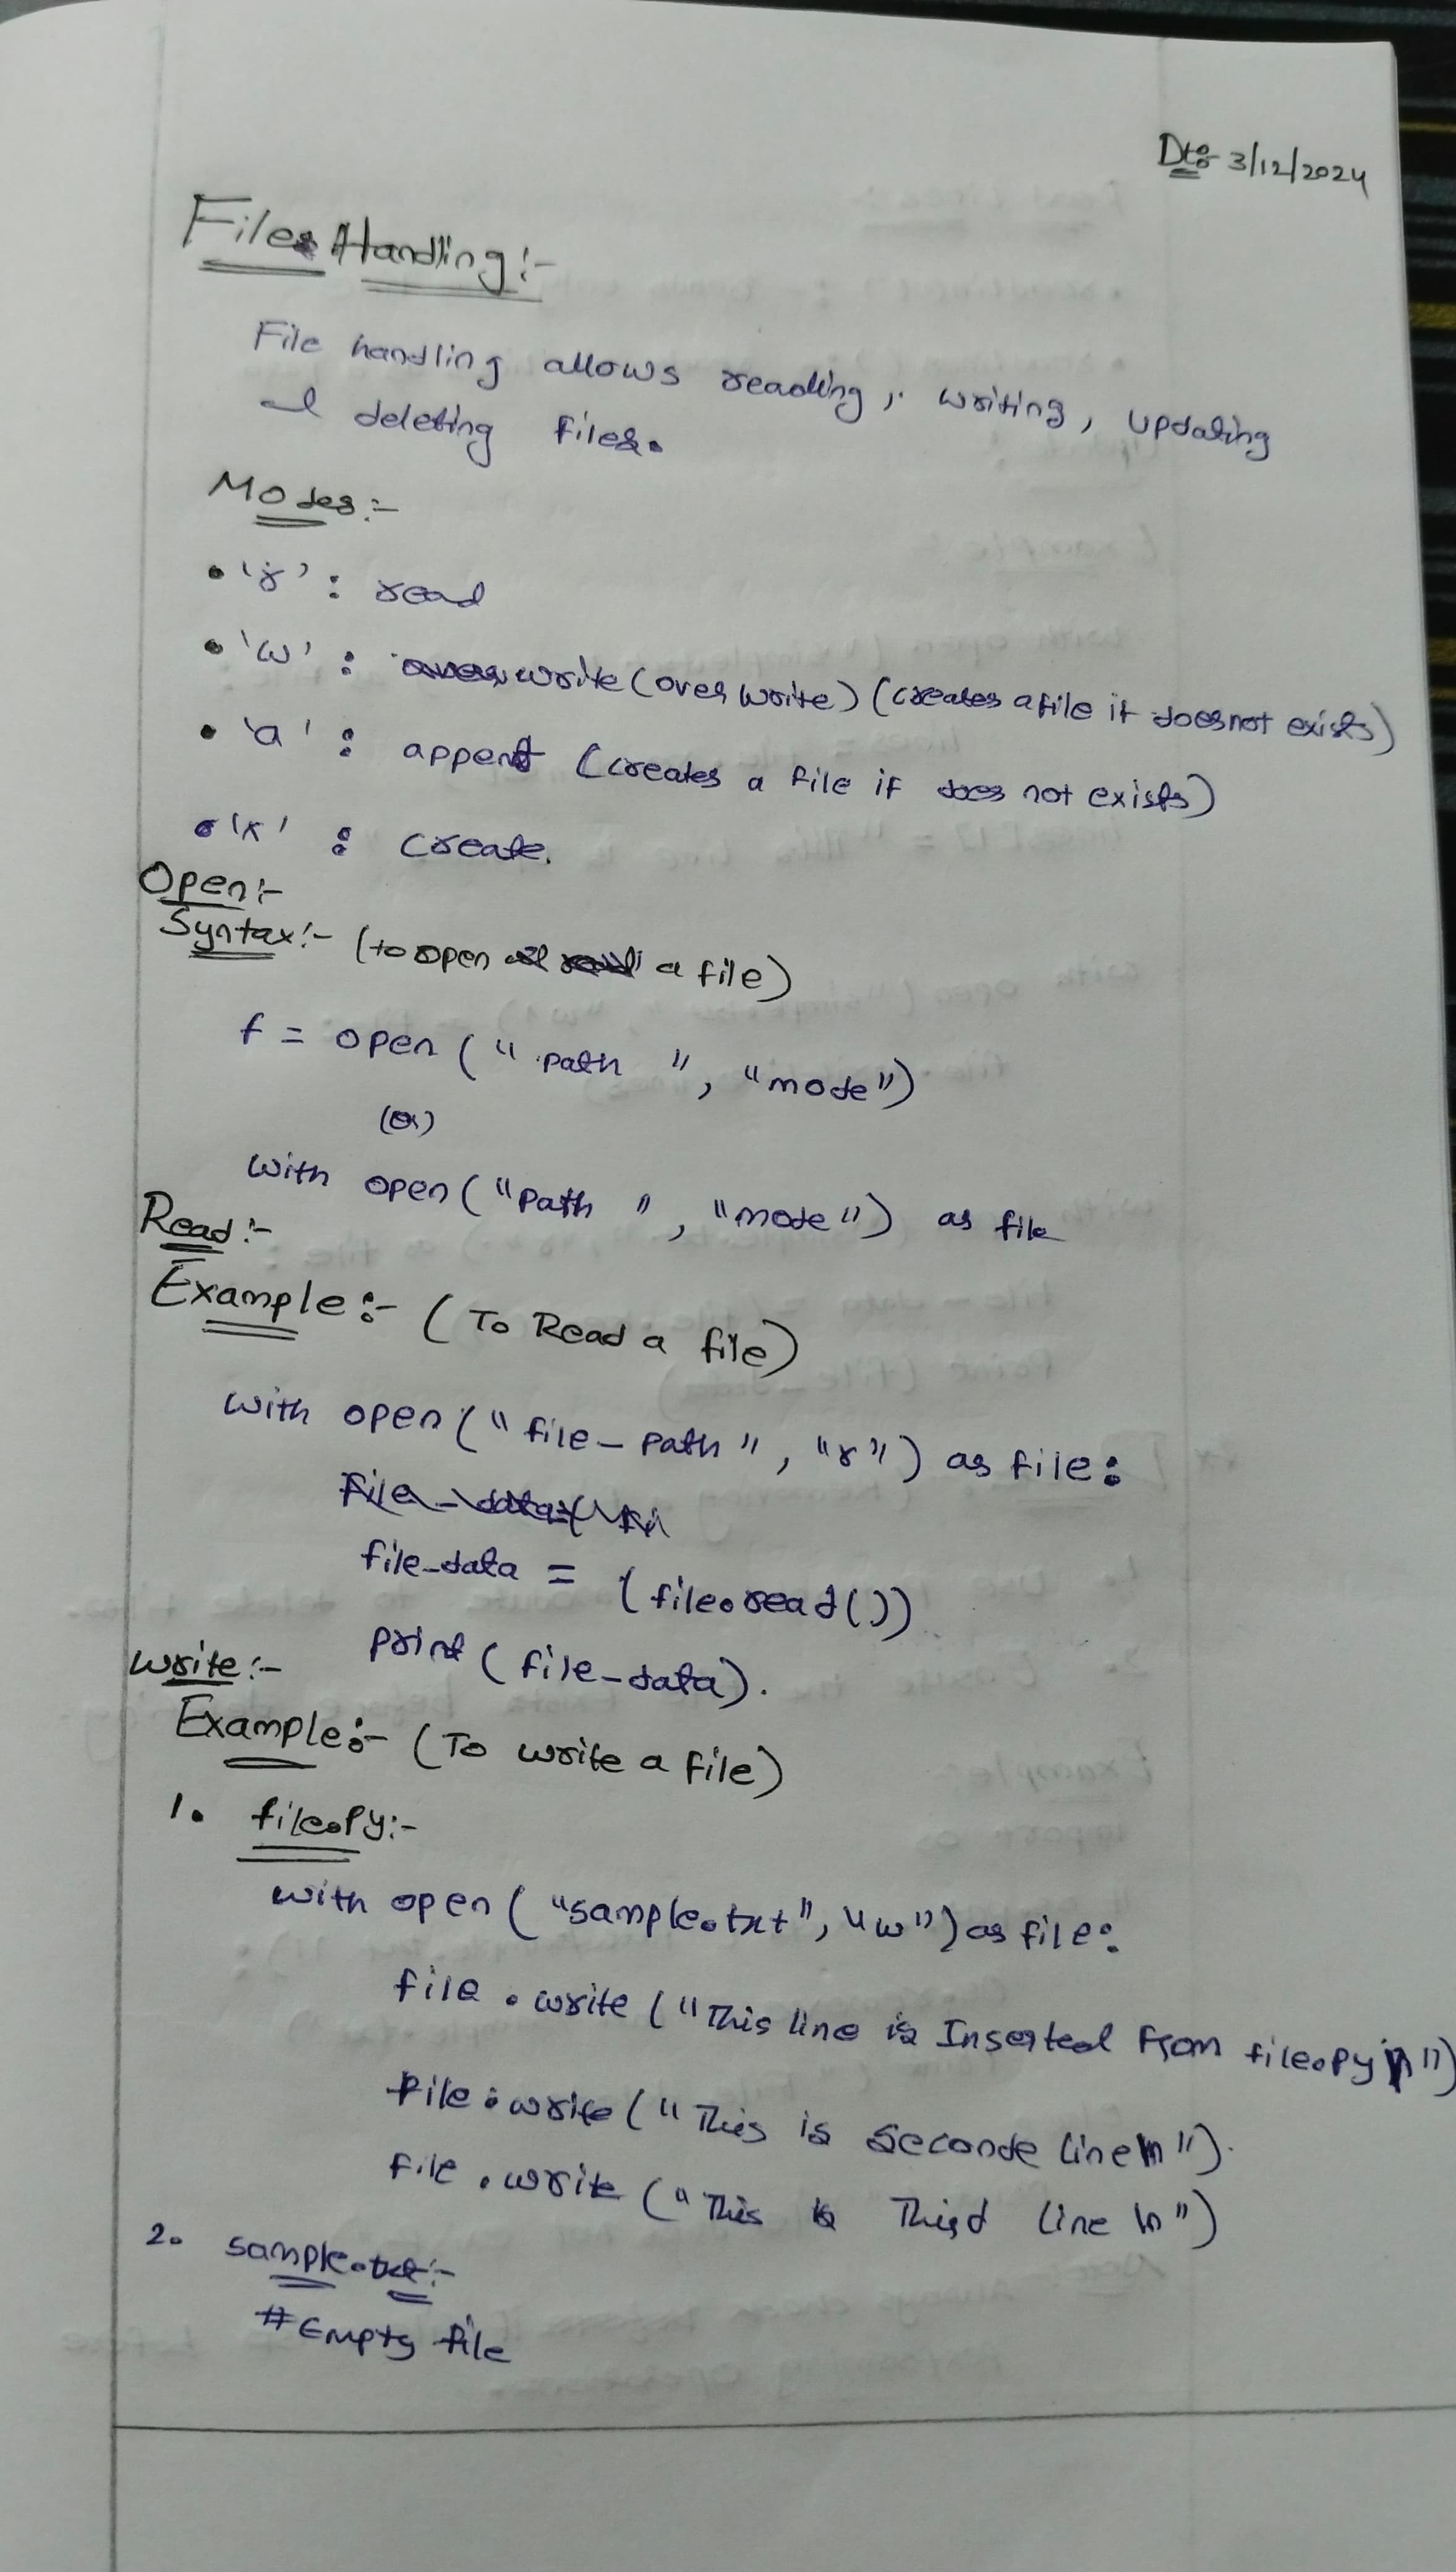 Dt:- 3/12/2024
File Handling:-
File handling allows reading, writing, updating
and deleting files.
Modes:-
• 'r' : read
• 'w' : write (over write) (creates a file if does not exists)
• 'a' : append (creates a file if does not exists)
• 'x' : create.
Open:-
Syntax:- (to open a file)
f = open (" path ", "mode")
(or)
with open ("Path ", "mode") as file
Read:-
Example:- ( To Read a file)
with open (" file_path ", "r") as file:
file_data = (file.read())
print (file_data).
Write:-
Example:- (To write a file)
1. file.py:-
with open ( "sample.txt", "w") as file:
file . write ("This line is Inserted from file.py\n")
file . write ("This is seconde line\n").
file . write ("This is Third line \n")
2. sample.txt:-
# Empty file